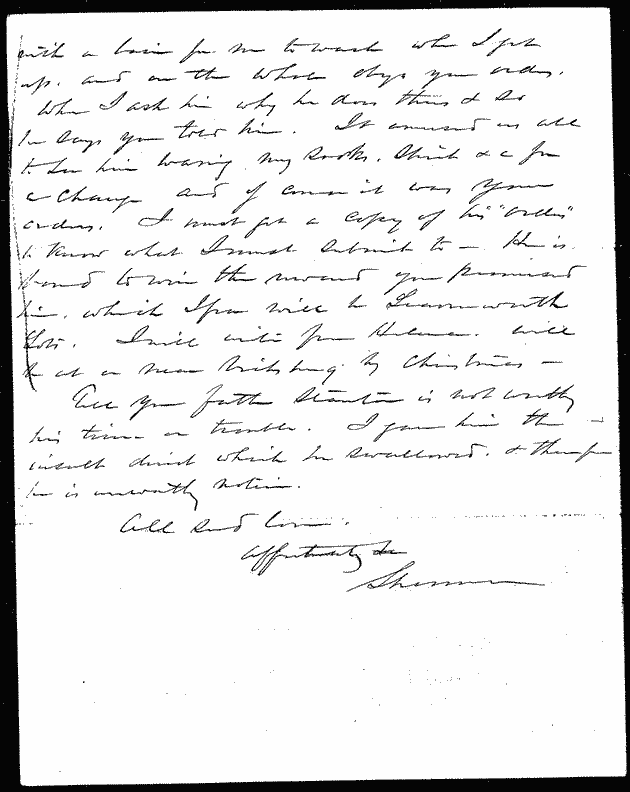 with a basin for me to wash when I get
up. and on the whole obeys your orders.
When I ask him why he does thus & so
he says you told him. It amused us all
to see him wearing my socks, shirt &c for
a change and of course it was your
orders. I must get a copy of his "orders"
to know what I must submit to — He is
bound to win the reward you promised
him, which I fear will be Leavenworth
Lots. I will write from Helena. will
be at or near Vicksburg by Christmas —
Tell your father Stanton is not worthy
his time or trouble. I gave him the —
insult direct which he swallowed, & therefore
he is unworthy notice.
All send love.
Affectionately &c
Sherman